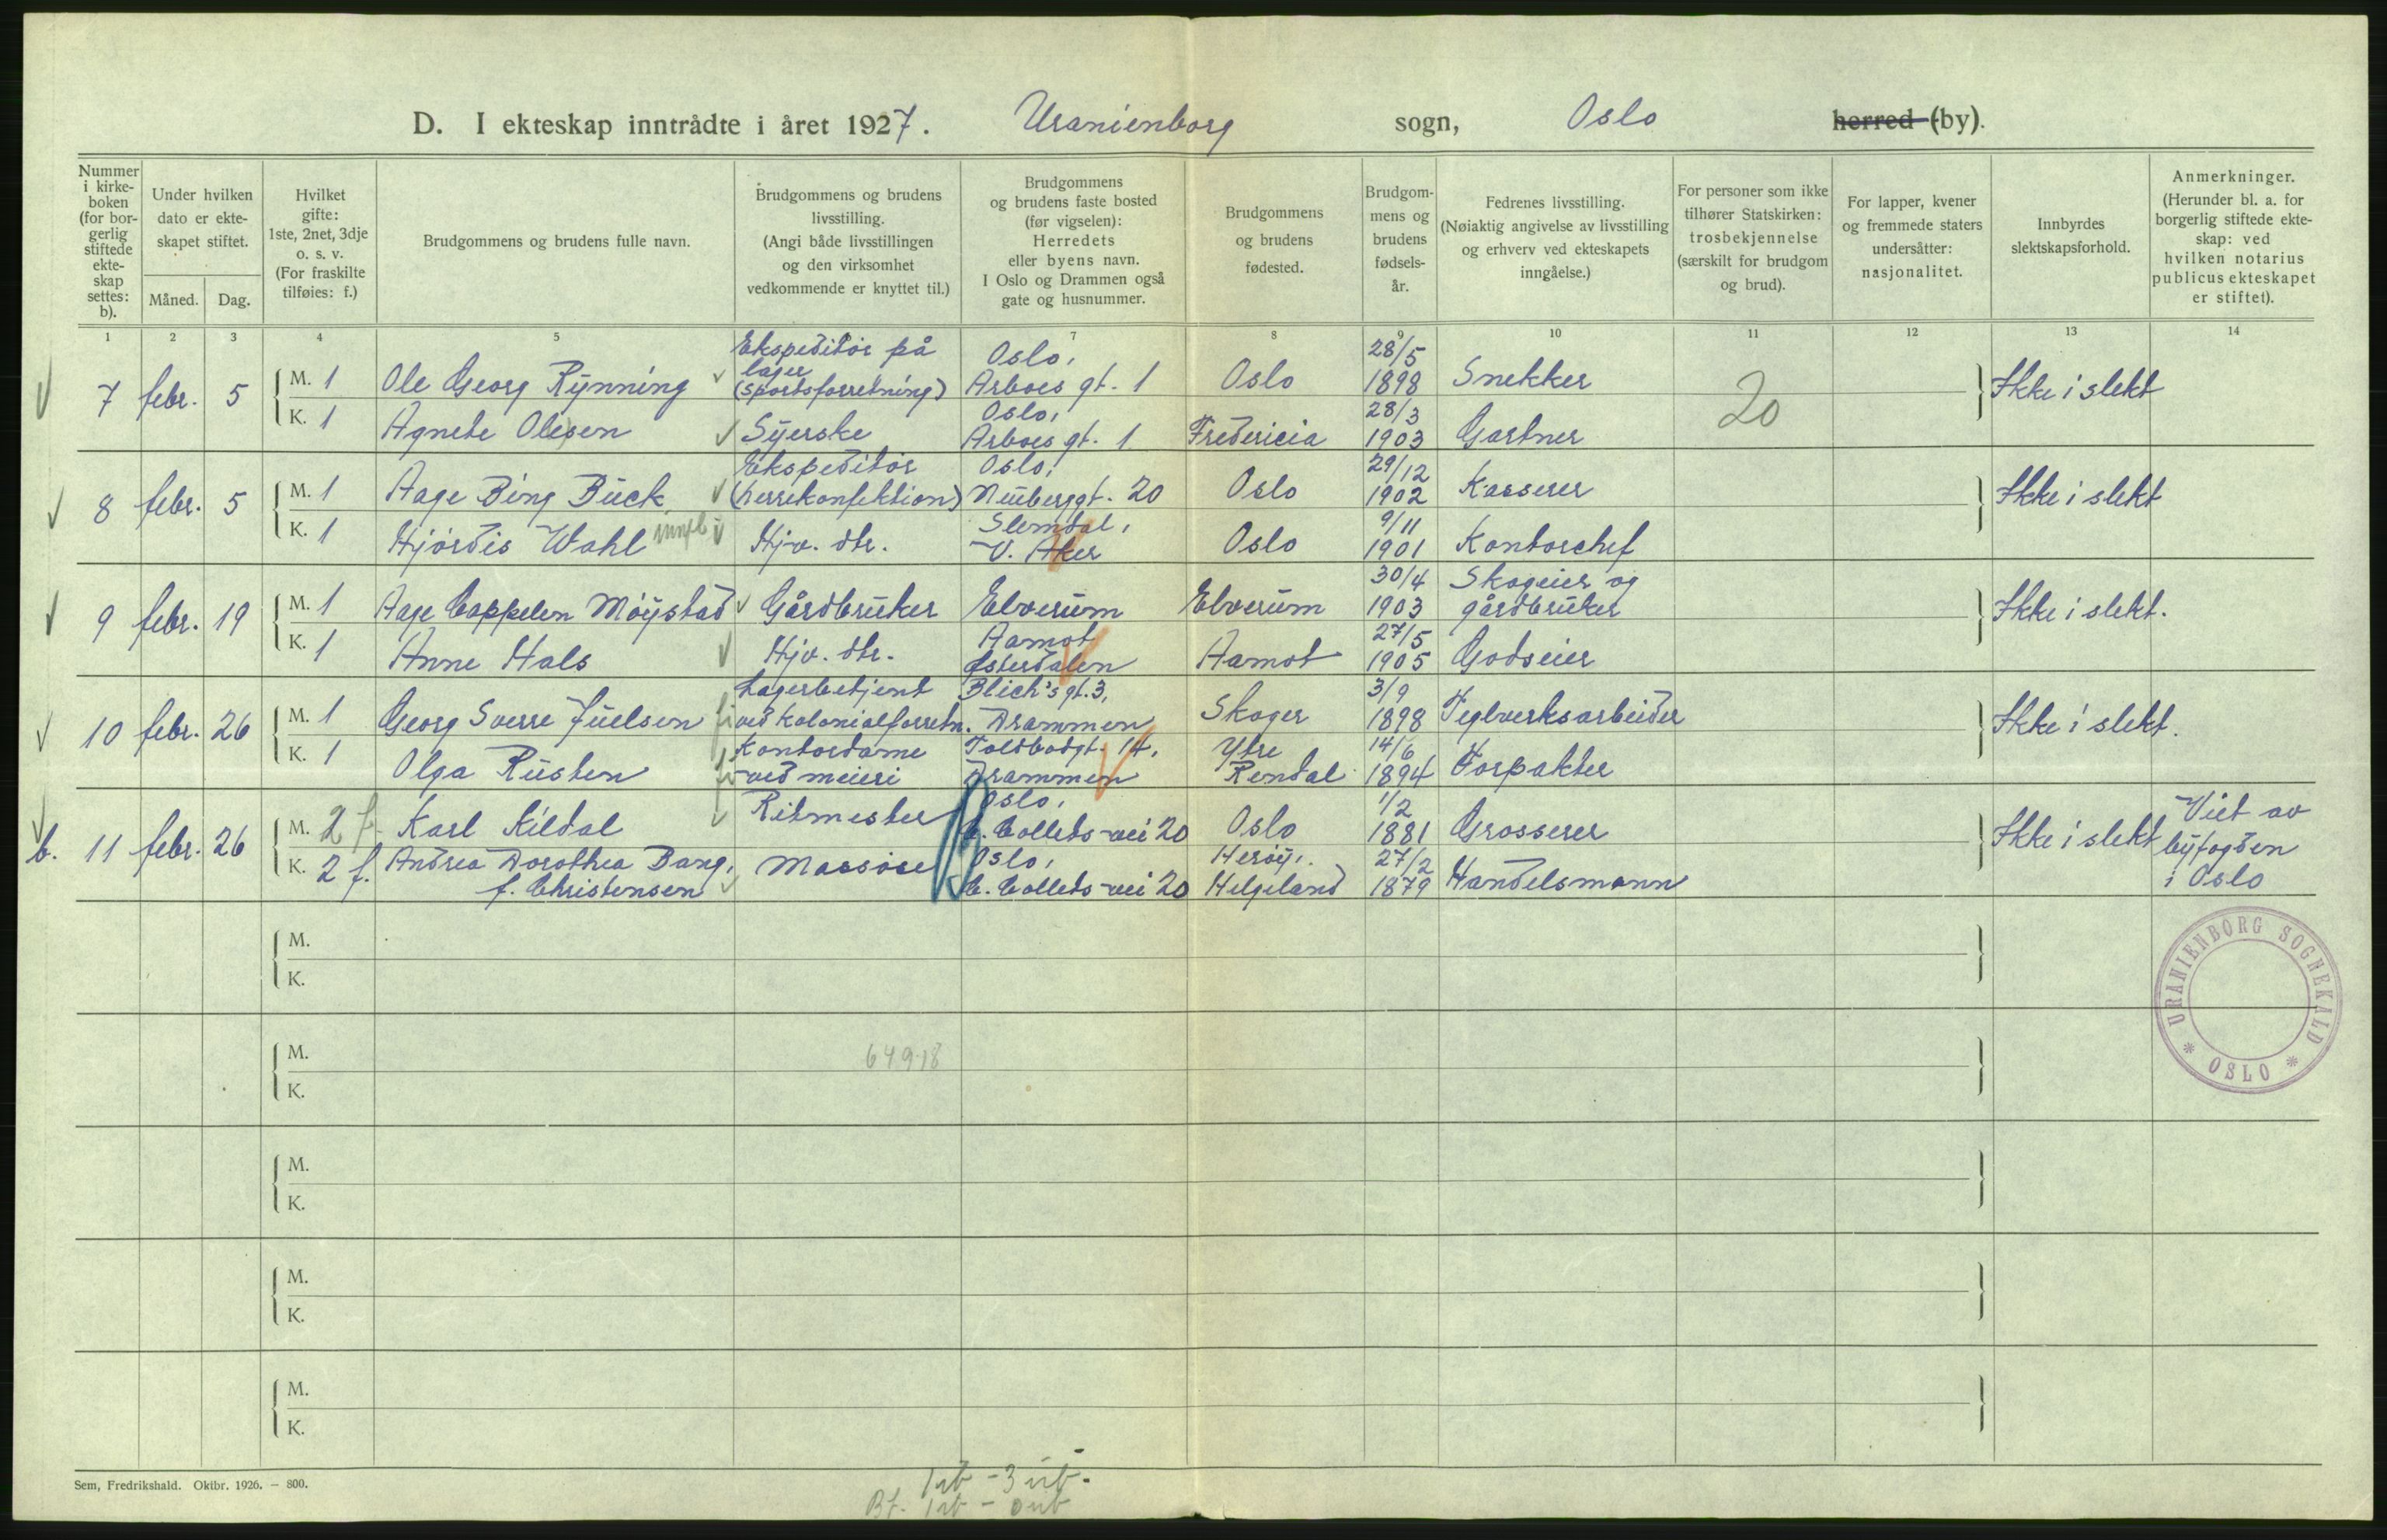 D. I ekteskap inntrådte i året 1927. Uranienborg sogn, Oslo herred (by).
Nummer i kirke-boken (for bor-gerlig stiftede ekte-skap settes: b).
Under hvilken dato er ekte-skapet stiftet.
Måned. Dag.
Hvilket gifte: 1ste, 2net, 3dje o. s. v. (For fraskilte tilføies: f.)
Brudgommens og brudens fulle navn.
Brudgommens og brudens livsstilling. (Angi både livsstillingen og den virksomhet vedkommende er knyttet til.)
Brudgommens og brudens faste bosted (før vigselen): Herredets eller byens navn. I Oslo og Drammen også gate og husnummer.
Brudgommens og brudens fødested.
Brudgom-mens og brudens fødsels-år.
Fedrenes livsstilling. (Nøiaktig angivelse av livsstilling og erhverv ved ekteskapets inngåelse.)
For personer som ikke tilhører Statskirken: trosbekjennelse (særskilt for brudgom og brud).
For lapper, kvener og fremmede staters undersåtter: nasjonalitet.
Innbyrdes slektskapsforhold.
Anmerkninger. (Herunder bl. a. for borgerlig stiftede ekte-skap: ved hvilken notarius publicus ekteskapet er stiftet).
1 2 3 4 5 7 8 9 10 11 12 13 14
7 febr. 5 M. 1 Ole Georg Rynning Ekspeditør på lager (sportsforretning) Oslo, Arboes gt. 1 Oslo 28/5 1898 Snekker 20 Ikke i slekt
K. 1 Agnete Olesen Syerske Oslo, Arboes gt. 1 Fredericia 28/3 1903 Gartner
8 febr. 5 M. 1 Aage Bing Buck Ekspeditør (herrekonfektion) Oslo, Neuberggt. 20 Oslo 29/12 1902 Kasserer Ikke i slekt
K. 1 Hjørdis Wahl Hjv. dtr. Slemdal, V. Aker Oslo 9/11 1901 Kontorchef
9 febr. 19 M. 1 Aage Cappelen Møystad Gårdbruker Elverum Elverum 30/4 1903 Skogeier og gårdbruker Ikke i slekt.
K. 1 Anne Hals Hjv. dtr. Aamot Østerdalen Aamot 27/5 1905 Godseier
10 febr. 26 M. 1 Georg Sverre Juelsen Lagerbetjent ved kolonialforretn. Blich's gt. 3, Drammen Skoger 3/9 1898 Teglverksarbeider Ikke i slekt.
K. 1 Olga Rusten Kontordame ved meieri Toldbodgt. 14, Drammen Ytre Rendal 14/6 1894 Forpakter
b. 11 febr. 26 M. 2 f. Karl Kildal Ritmester Oslo, C. Collets vei 20 Oslo 1/2 1881 Grosserer Ikke i slekt Viet av byfogden i Oslo
K. 2 f. Andrea Dorothea Bang, f. Christensen Massøse Oslo, C. Collets vei 20 Herøy, Helgeland 27/2 1879 Handelsmann
M.
K.
URANIENBORG SOGNEKALD * OSLO *
M. 649-18
K.
M.
K.
M.
K.
M.
K.
Sem, Fredrikshald. Oktbr. 1926. — 800.
1 ub - 3 ub.
Bf. 1 ub - 0 ub